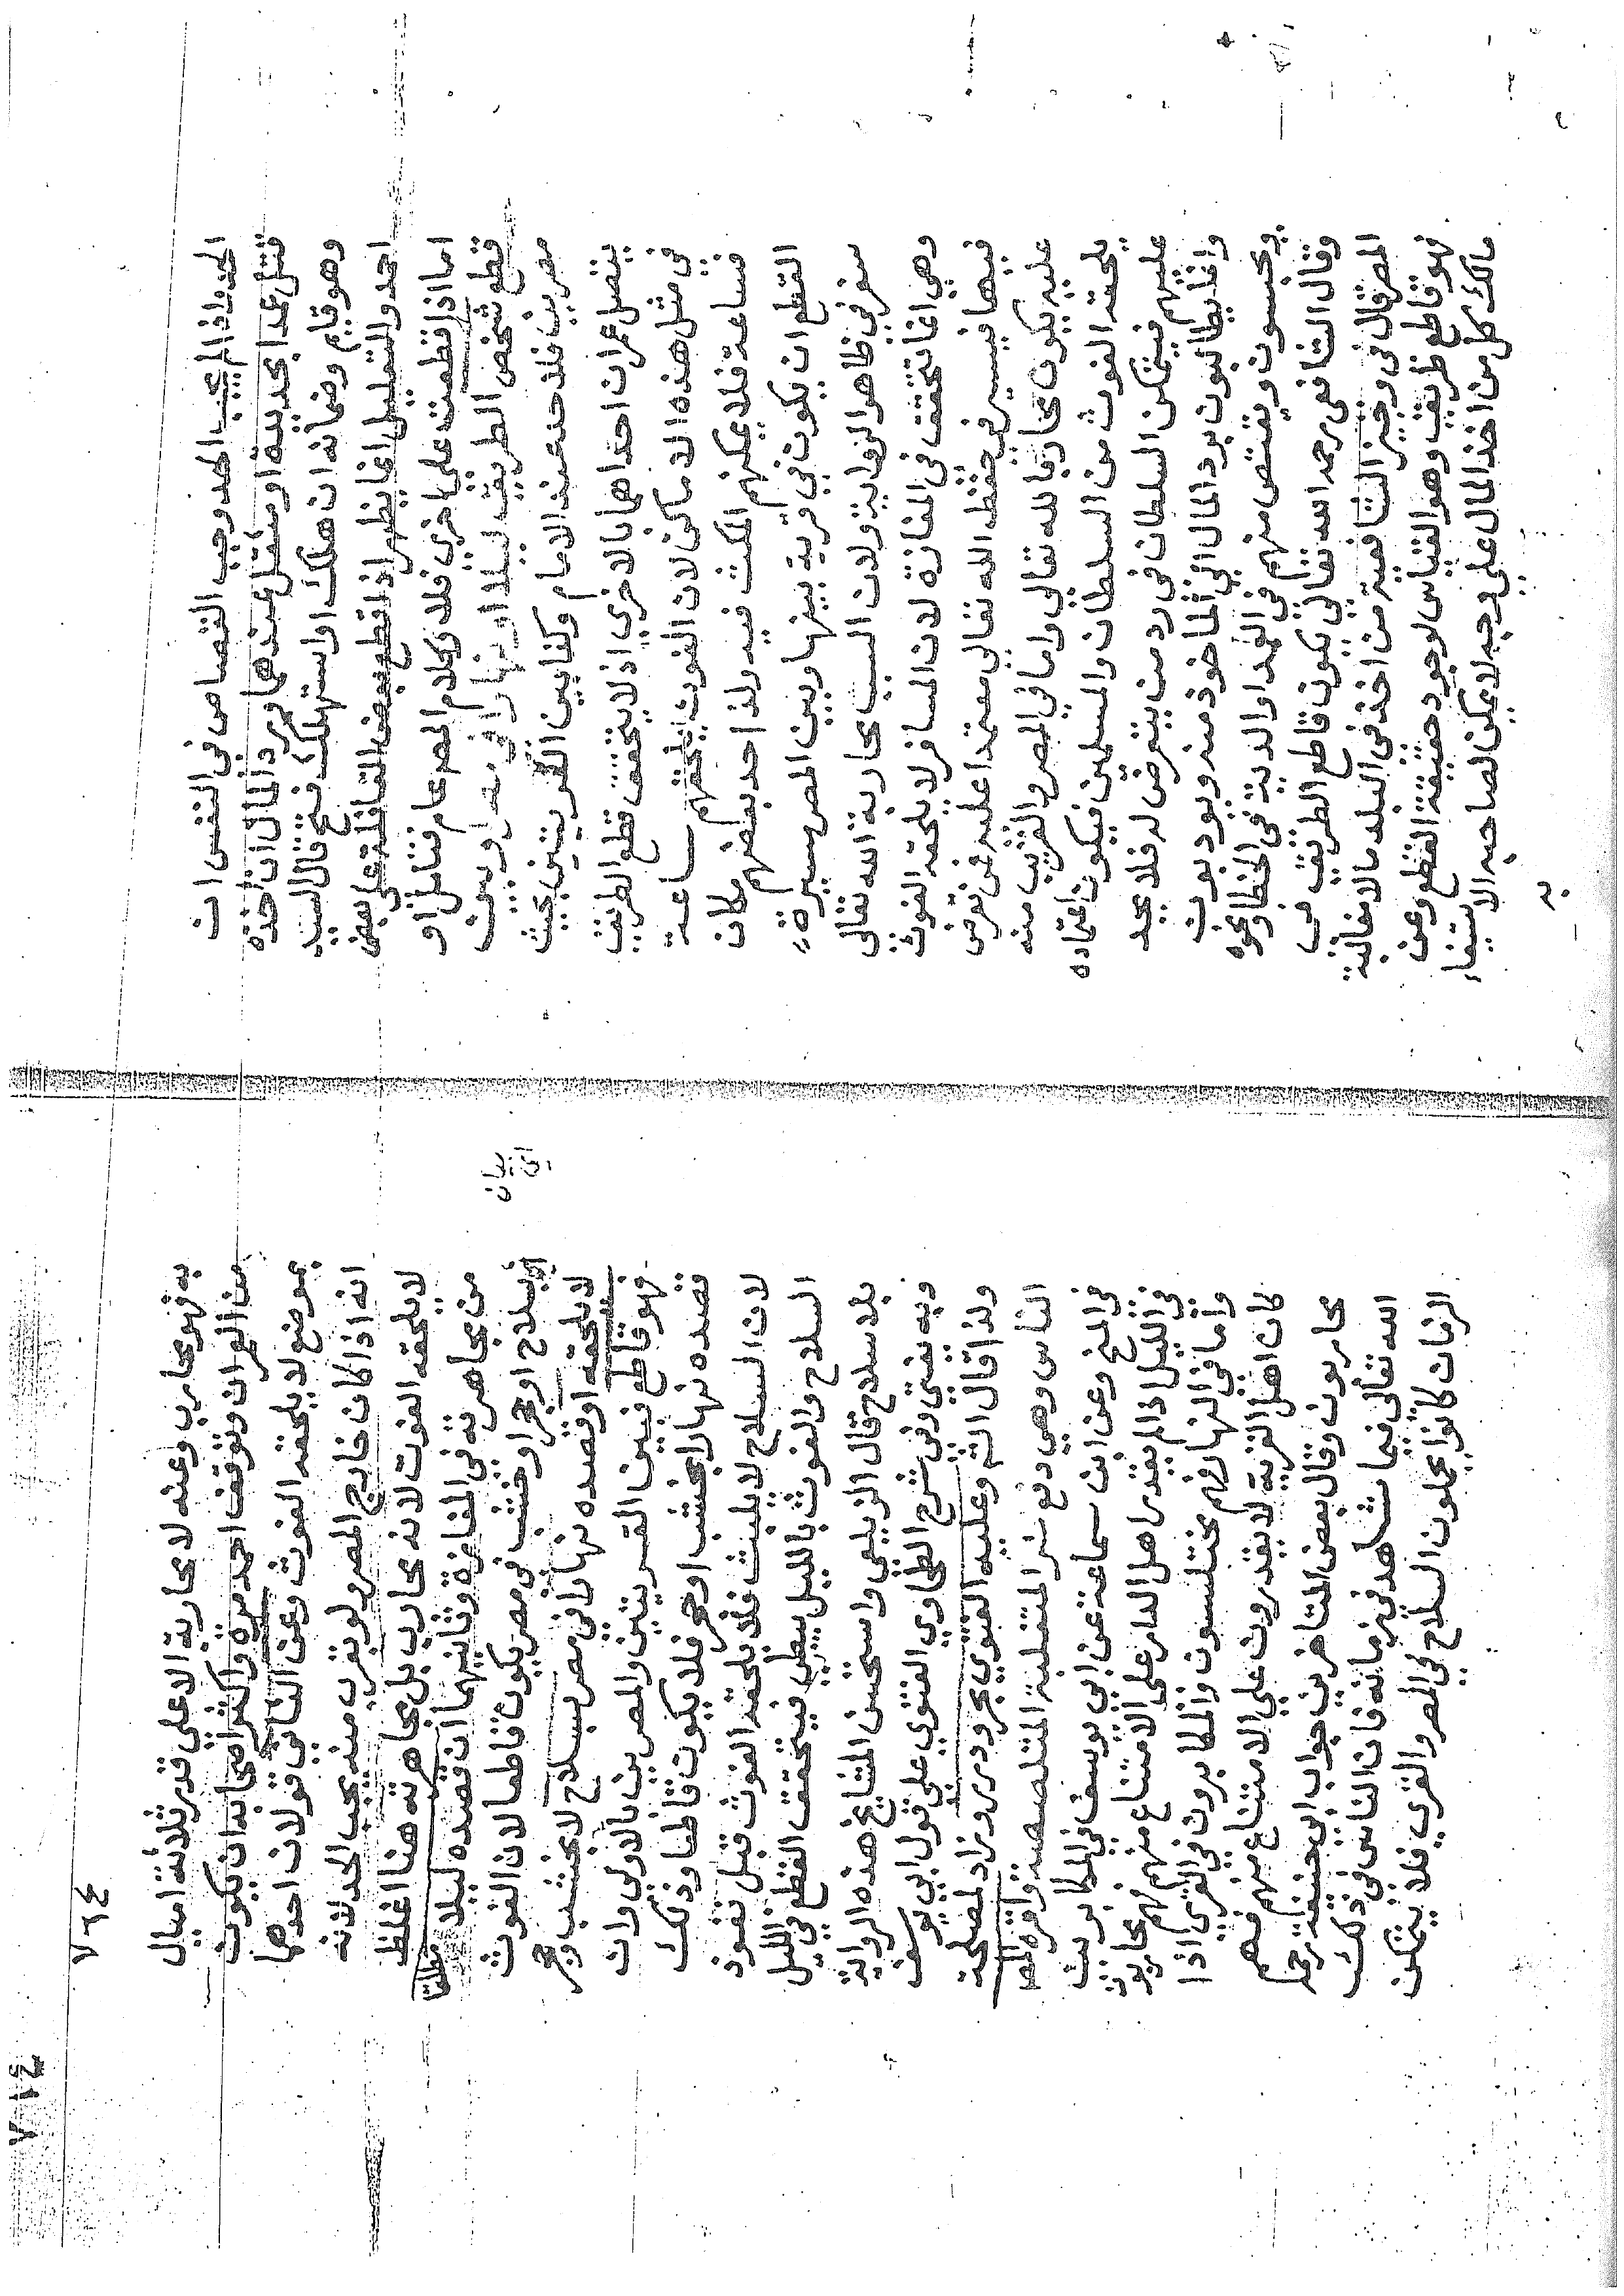 الحد واذا لم يجب الحد وجب القصاص في النفس ان
قتل عمدا بحديدة او مثقل عندهما ورد المال ان اخذه
وهو قايم وضمانه ان هلك او استهلك فتح قال السيد
احمد والتعليل انما يظهر اذا قطع بعض القافلة على بعض
اما اذا قطعت على اخرى فلا وكلام المصر عام فتامل او
قطع شخص الطريق ليلا او نهارا في مصر او بين
مصرين فلا حد عند الامام وكذا بين القريتين بحيث
يتصل عمران احداهما بالاخرى اذ لا يتحقق قطع الطريق
في مثل هذه الاماكن لان الغوث يلحقهم ساعة
فساعة فلا يمكنهم المكث فيه ولذا حد بعضهم مكان
القطع ان يكون في قرية بينها وبين المصر مسيرة
سفر في ظاهر الرواية ولان السبب محاربة الله تعالى
وهي انما تتحقق في المفازة لان المسافر لا يلحقه الغوث
فيها فيسير في حفظ الله تعالى معتمدا عليه فمن تعرض
عليه يكون محاربا لله تعالى واما في المصر والقرب منه
يلحقه الغوث من السلطان والمسلمين فيكون اعتماده
عليهم فيتمكن السلطان في رد من يتعرض له فلا يحد
وانما يطالبون برد المال الى المأخوذ منه ويودبون
ويحبسون ويقتص منهم في العمد او الدية في الخطا ونحوه
وقال الشافعي رحمه الله تعالى يكون قاطع الطريق في
المصر قال في وجيز الشافعية من اخذ في البلد مالا مغالبة
فهو قاطع طريق وهو القياس لوجود حقيقة القطع وعن
مالك كل من اخذ المال على وجه لا يمكن لصاحبه الاستيفاء
به
٧٦٤
٧١٤
به فهو محارب وعنه لا محاربة الا على قدر ثلاثة اميال
من العمران وتوقف احمد مرة واكثر اصحابه ان يكون
بموضع لا يلحقه الغوث وعن الثاني قولان احدهما
انه اذا كان خارج المصر ولو بقرب منه يجب الحد لانه
لا يلحقه الغوث لانه محارب بل مجاهرته هنا اغلظ
من مجاهرته في المفازة وثانيهما ان قصده ليلا مطلقا
بسلاح او حجر او خشب في مصر يكون قاطعا لان الغوث
اي بيان
لا يلحقه او قصده نهارا في مصر بسلاح لا بخشب وحجر
فهو قاطع فبين القريتين والمصرين بالاولى وان
قصده نهارا بخشب او حجر فلا يكون قاطعا وذلك
لان السلاح لا يلبث فلا يلحقه الغوث قبل نفوذ
السلاح والغوث بالليل يبطي فيتحقق القطع في الليل
بلا سلاح قال الزيلعي واستحسن المشايخ هذه الرواية
وبه يفتى وفي شرح الطحاوي الفتوى على قول ابي يوسف
ولذا قال الثم وعليه الفتوى بحر ودرر وزاد لمصلحة
الناس وهي دفع شر المتغلبة المتلصصة واقره المصر
في المنح وعن ابن سماعة عن ابي يوسف في المكابرين
في الليل اذا لم يقدر اهل الدار على الامتناع منهم فهم محاربون
واما في النهار فهم مختلسون والمكابرون في القرى اذا
كان اهل القرية لا يقدرون على الامتناع منهم فهم
محاربون وقال بعض المتاخرين جواب ابي حنيفة رحمه
الله تعالى فيما شاهد في زمانه فان الناس في ذلك
الزمان كانوا يحملون السلاح في المصر والقرى فلا يتمكن